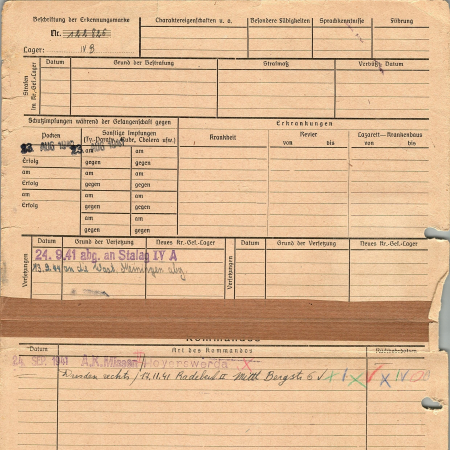 Beschriftung der Erkennungsmarke
Nr. 122 826
Lager: IV B
Charaktereigenschaften u. a.
Besondere Fähigkeiten
Sprachkenntnisse
Führung
Strafen im Kr.-Gef.-Lager
Datum
Grund der Bestrafung
Strafmaß
Verbüßt, Datum
Schutzimpfungen während der Gefangenschaft gegen
Erkrankungen
Pocken
Sonstige Impfungen
(Ty.-Paraty., Ruhr, Cholera usw.)
Krankheit
Revier
von bis
Lazarett — Krankenhaus
von bis
23. AUG 1941
23. AUG 1941
am
am
Erfolg
gegen
gegen
am
am
am
Erfolg
gegen
gegen
am
am
am
Erfolg
gegen
gegen
am
am
gegen
gegen
am
am
gegen
gegen
Versetzungen
Datum
Grund der Versetzung
Neues Kr.-Gef.-Lager
Versetzungen
Datum
Grund der Versetzung
Neues Kr.-Gef.-Lager
24. 9. 41 abg. an Stalag IV A
Kommandos
Datum
Art des Kommandos
Rückkehrdatum
24. SEP. 1941
A.K. Hoyerswerda X
Dresden rechts / 17.11.41 Radebeul II Mittl. Bergstr. 6